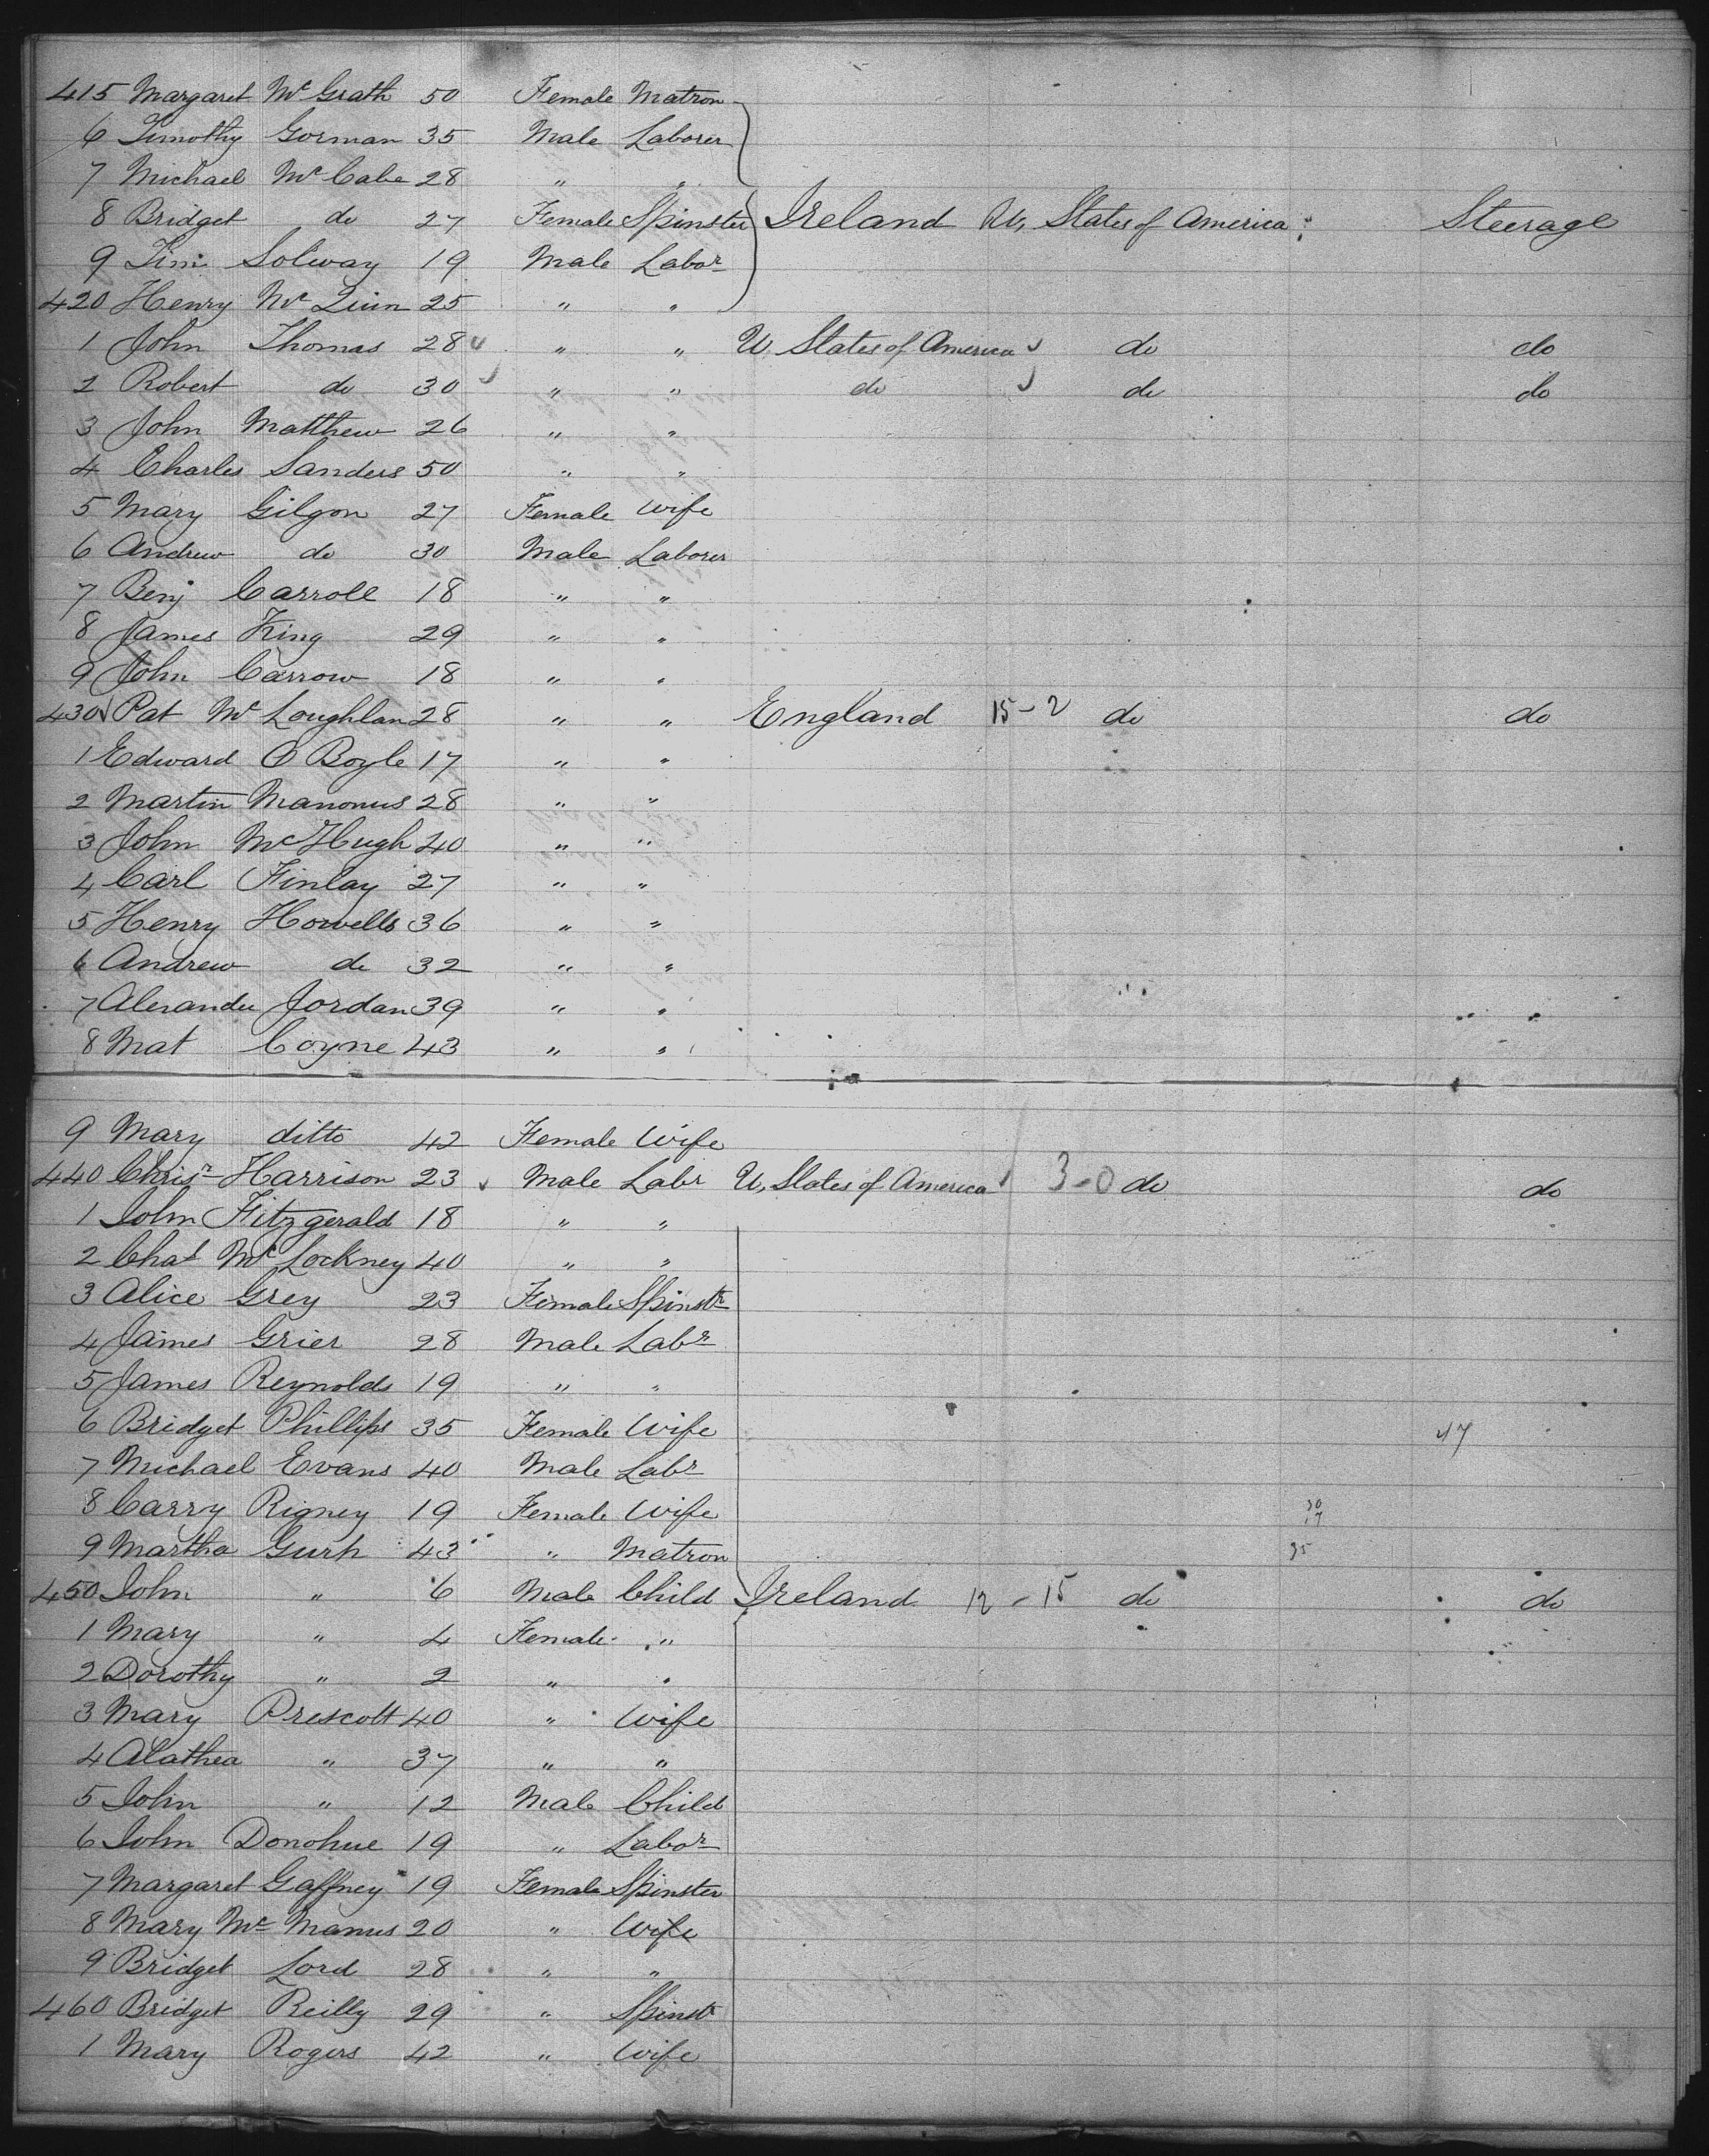 415 Margaret Mc Grath 50 Female Matron
6 Timothy Gorman 35 Male Laborer
7 Michael Mc Cabe 28 " "
8 Bridget do 27 Female Spinster Ireland U, States of America Steerage
9 Tim Solway 19 Male Labor
420 Henry Mc Quin 25 " "
1 John Thomas 28 " " U, States of America do do
2 Robert do 30 " " do do do
3 John Matthew 26 " "
4 Charles Sanders 50 " "
5 Mary Gilgon 27 Female Wife
6 Andrew do 30 Male Laborer
7 Benj Carroll 18 " "
8 James King 29 " "
9 John Carrow 18 " "
430 Pat Mc Loughlan 28 " " England 15-2 do do
1 Edward O Boyle 17 " "
2 Martin Manonus 28 " "
3 John McHugh 40 " "
4 Carl Finlay 27 " "
5 Henry Howells 36 " "
6 Andrew do 32 " "
7 Alexander Jordan 39 " "
8 Mat Coyne 43 " "
9 Mary ditto 42 Female Wife
440 Chrisr Harrison 23 Male Labr U, States of America 3-0 do do
1 John Fitzgerald 18 " "
2 Chas Mc Lockney 40 " "
3 Alice Grey 23 Female Spinstr
4 James Grier 28 Male Labr
5 James Reynolds 19 " "
6 Bridget Phillips 35 Female Wife 47
7 Michael Evans 40 Male Labr
8 Carry Rigney 19 Female Wife 30 17
9 Martha Gurh 43 " Matron 35
450 John " 6 Male Child Ireland 12-15 do do
1 Mary " 4 Female "
2 Dorothy " 2 " "
3 Mary Prescott 40 " Wife
4 Alathea " 37 " "
5 John " 12 Male Child
6 John Donohue 19 " Labor
7 Margaret Gaffney 19 Female Spinster
8 Mary Mc Manus 20 " Wife
9 Bridget Lord 28 " "
460 Bridget Reilly 29 " Spinstr
1 Mary Rogers 42 " Wife